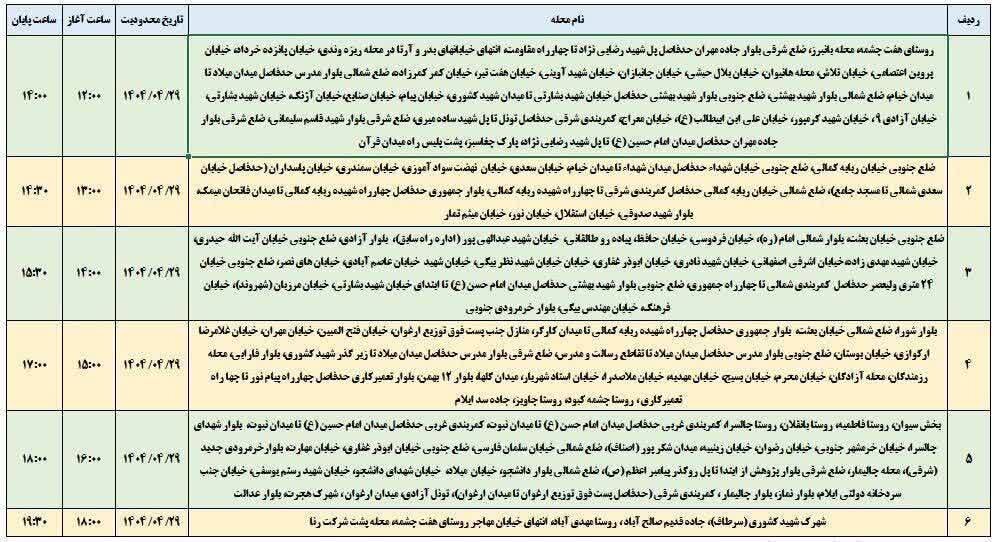 ردیف نام محله تاریخ محدودیت ساعت آغاز ساعت پایان
روستای هفت چشمه، محله بانبرز، ضلع شرقی بلوار جاده مهران حدفاصل پل شهید رضایی نژاد تا چهارراه مقاومت، انتهای خیابانهای بدر و آرتا در محله ریزه وندی، خیابان پانزده خرداد، خیابان
پروین اعتصامی، خیابان تلاش، محله هانیوان، خیابان بلال حبشی، خیابان جانبازان، خیابان شهید آوینی، خیابان هفت تیر، خیابان کمر کمرزاده، ضلع شمالی بلوار مدرس حدفاصل میدان میلاد تا
1 میدان خیام، ضلع شمالی بلوار شهید بهشتی، ضلع جنوبی بلوار شهید بهشتی حدفاصل خیابان شهید بشارتی تا میدان شهید کشوری، خیابان پیام، خیابان صنایع، خیابان آژنگ، خیابان شهید بشارتی، ۱۴۰۴/۰۴/۲۹ ۱۲:۰۰ ۱۴:۰۰
خیابان آزادی ۹، خیابان شهید کرمپور، خیابان علی ابن ابیطالب (ع)، خیابان معراج، کمربندی شرقی حدفاصل تونل تا پل شهید ساده میری، ضلع شرقی بلوار شهید قاسم سلیمانی، ضلع شرقی بلوار
جاده مهران حدفاصل میدان امام حسین (ع) تا پل شهید رضایی نژاد، پارک چغاسبز، پشت پلیس راه میدان قرآن
ضلع جنوبی خیابان ریابه کمالی، ضلع جنوبی خیابان شهداء حدفاصل میدان شهداء تا میدان خیام، خیابان سعدی، خیابان نهضت سواد آموزی، خیابان سمندری، خیابان پاسداران (حدفاصل خیابان
۲ سعدی شمالی تا مسجد جامع)، ضلع شمالی خیابان ریابه کمالی حدفاصل کمربندی شرقی تا چهارراه شهیده ریابه کمالی، بلوار جمهوری حدفاصل چهارراه شهیده ریابه کمالی تا میدان فاتحان میمک، ۱۴۰۴/۰۴/۲۹ ۱۳:۰۰ ۱۴:۳۰
بلوار شهید صدوقی، خیابان استقلال، خیابان نور، خیابان میثم تمار
ضلع جنوبی خیابان بعثت، بلوار شمالی امام (ره)، خیابان فردوسی، خیابان حافظ، پیاده رو طالقانی، خیابان شهید عبدالهی پور (اداره راه سابق)، بلوار آزادی، ضلع جنوبی خیابان آیت الله حیدری،
۳ خیابان شهید مهدی زاده، خیابان اشرفی اصفهانی، خیابان شهید نادری، خیابان ابوذر غفاری، خیابان شهید نظر بیگی، خیابان شهید خیابان عاصم آبادی، خیابان های نصر، ضلع جنوبی خیابان ۱۴۰۴/۰۴/۲۹ ۱۴:۰۰ ۱۵:۳۰
۲۴ متری ولیعصر حدفاصل کمربندی شمالی تا چهارراه جمهوری، ضلع جنوبی بلوار شهید بهشتی حدفاصل میدان امام حسن (ع) تا ابتدای خیابان شهید بشارتی، خیابان مرزبان (شهروند)، خیابان
فرهنگ، خیابان مهندس بیگی، بلوار خرمرودی جنوبی
بلوار شورا، ضلع شمالی خیابان بعثت، بلوار جمهوری حدفاصل چهارراه شهیده ریابه کمالی تا میدان کارگر، منازل جنب پست فوق توزیع ارغوان، خیابان فتح المبین، خیابان مهران، خیابان غلامرضا
ارکوازی، خیابان بوستان، ضلع جنوبی بلوار مدرس حدفاصل میدان میلاد تا تقاطع رسالت و مدرس، ضلع شرقی بلوار مدرس حدفاصل میدان میلاد تا زیر گذر شهید کشوری، بلوار فارابی، محله
۴ رزمندگان، محله آزادگان، خیابان محرم، خیابان بسیج، خیابان مهدیه، خیابان ملاصدرا، خیابان استاد شهریار، میدان گلها، بلوار ۱۲ بهمن، بلوار تعمیرکاری حدفاصل چهارراه پیام نور تا چها راه ۱۴۰۴/۰۴/۲۹ ۱۵:۰۰ ۱۷:۰۰
تعمیرکاری، روستا چشمه کبود، روستا چاویز، جاده سد ایلام
بخش سیوان، روستا فاطمیه، روستا بانقلان، روستا چالسرا، کمربندی غربی حدفاصل میدان امام حسن (ع) تا میدان نبوت، کمربندی غربی حدفاصل میدان امام حسین (ع) تا میدان نبوت، بلوار شهدای
۵ چالسرا، خیابان خرمشهر جنوبی، خیابان رضوان، خیابان زینبیه، میدان شکر پور (اصناف)، ضلع شمالی خیابان سلمان فارسی، ضلع جنوبی خیابان ابوذر غفاری، خیابان مهارت، بلوار خرمرودی جدید ۱۴۰۴/۰۴/۲۹ ۱۶:۰۰ ۱۸:۰۰
(شرقی)، محله چالیمار، ضلع شرقی بلوار پژوهش از ابتدا تا پل روگذر پیامبر اعظم (ص)، ضلع شمالی بلوار دانشجو، خیابان میلاد، خیابان شهدای دانشجو، خیابان شهید رستم یوسفی، خیابان جنب
سردخانه دولتی ایلام، بلوار نماز، بلوار چالیمار، کمربندی شرقی (حدفاصل پست فوق توزیع ارغوان تا میدان ارغوان)، تونل آزادی، میدان ارغوان، شهرک هجرت، بلوار عدالت
۶ شهرک شهید کشوری (سرطاف)، جاده قدیم صالح آباد، روستا مهدی آباد، انتهای خیابان مهاجر روستای هفت چشمه، محله پشت شرکت رنا ۱۴۰۴/۰۴/۲۹ ۱۸:۰۰ ۱۹:۳۰